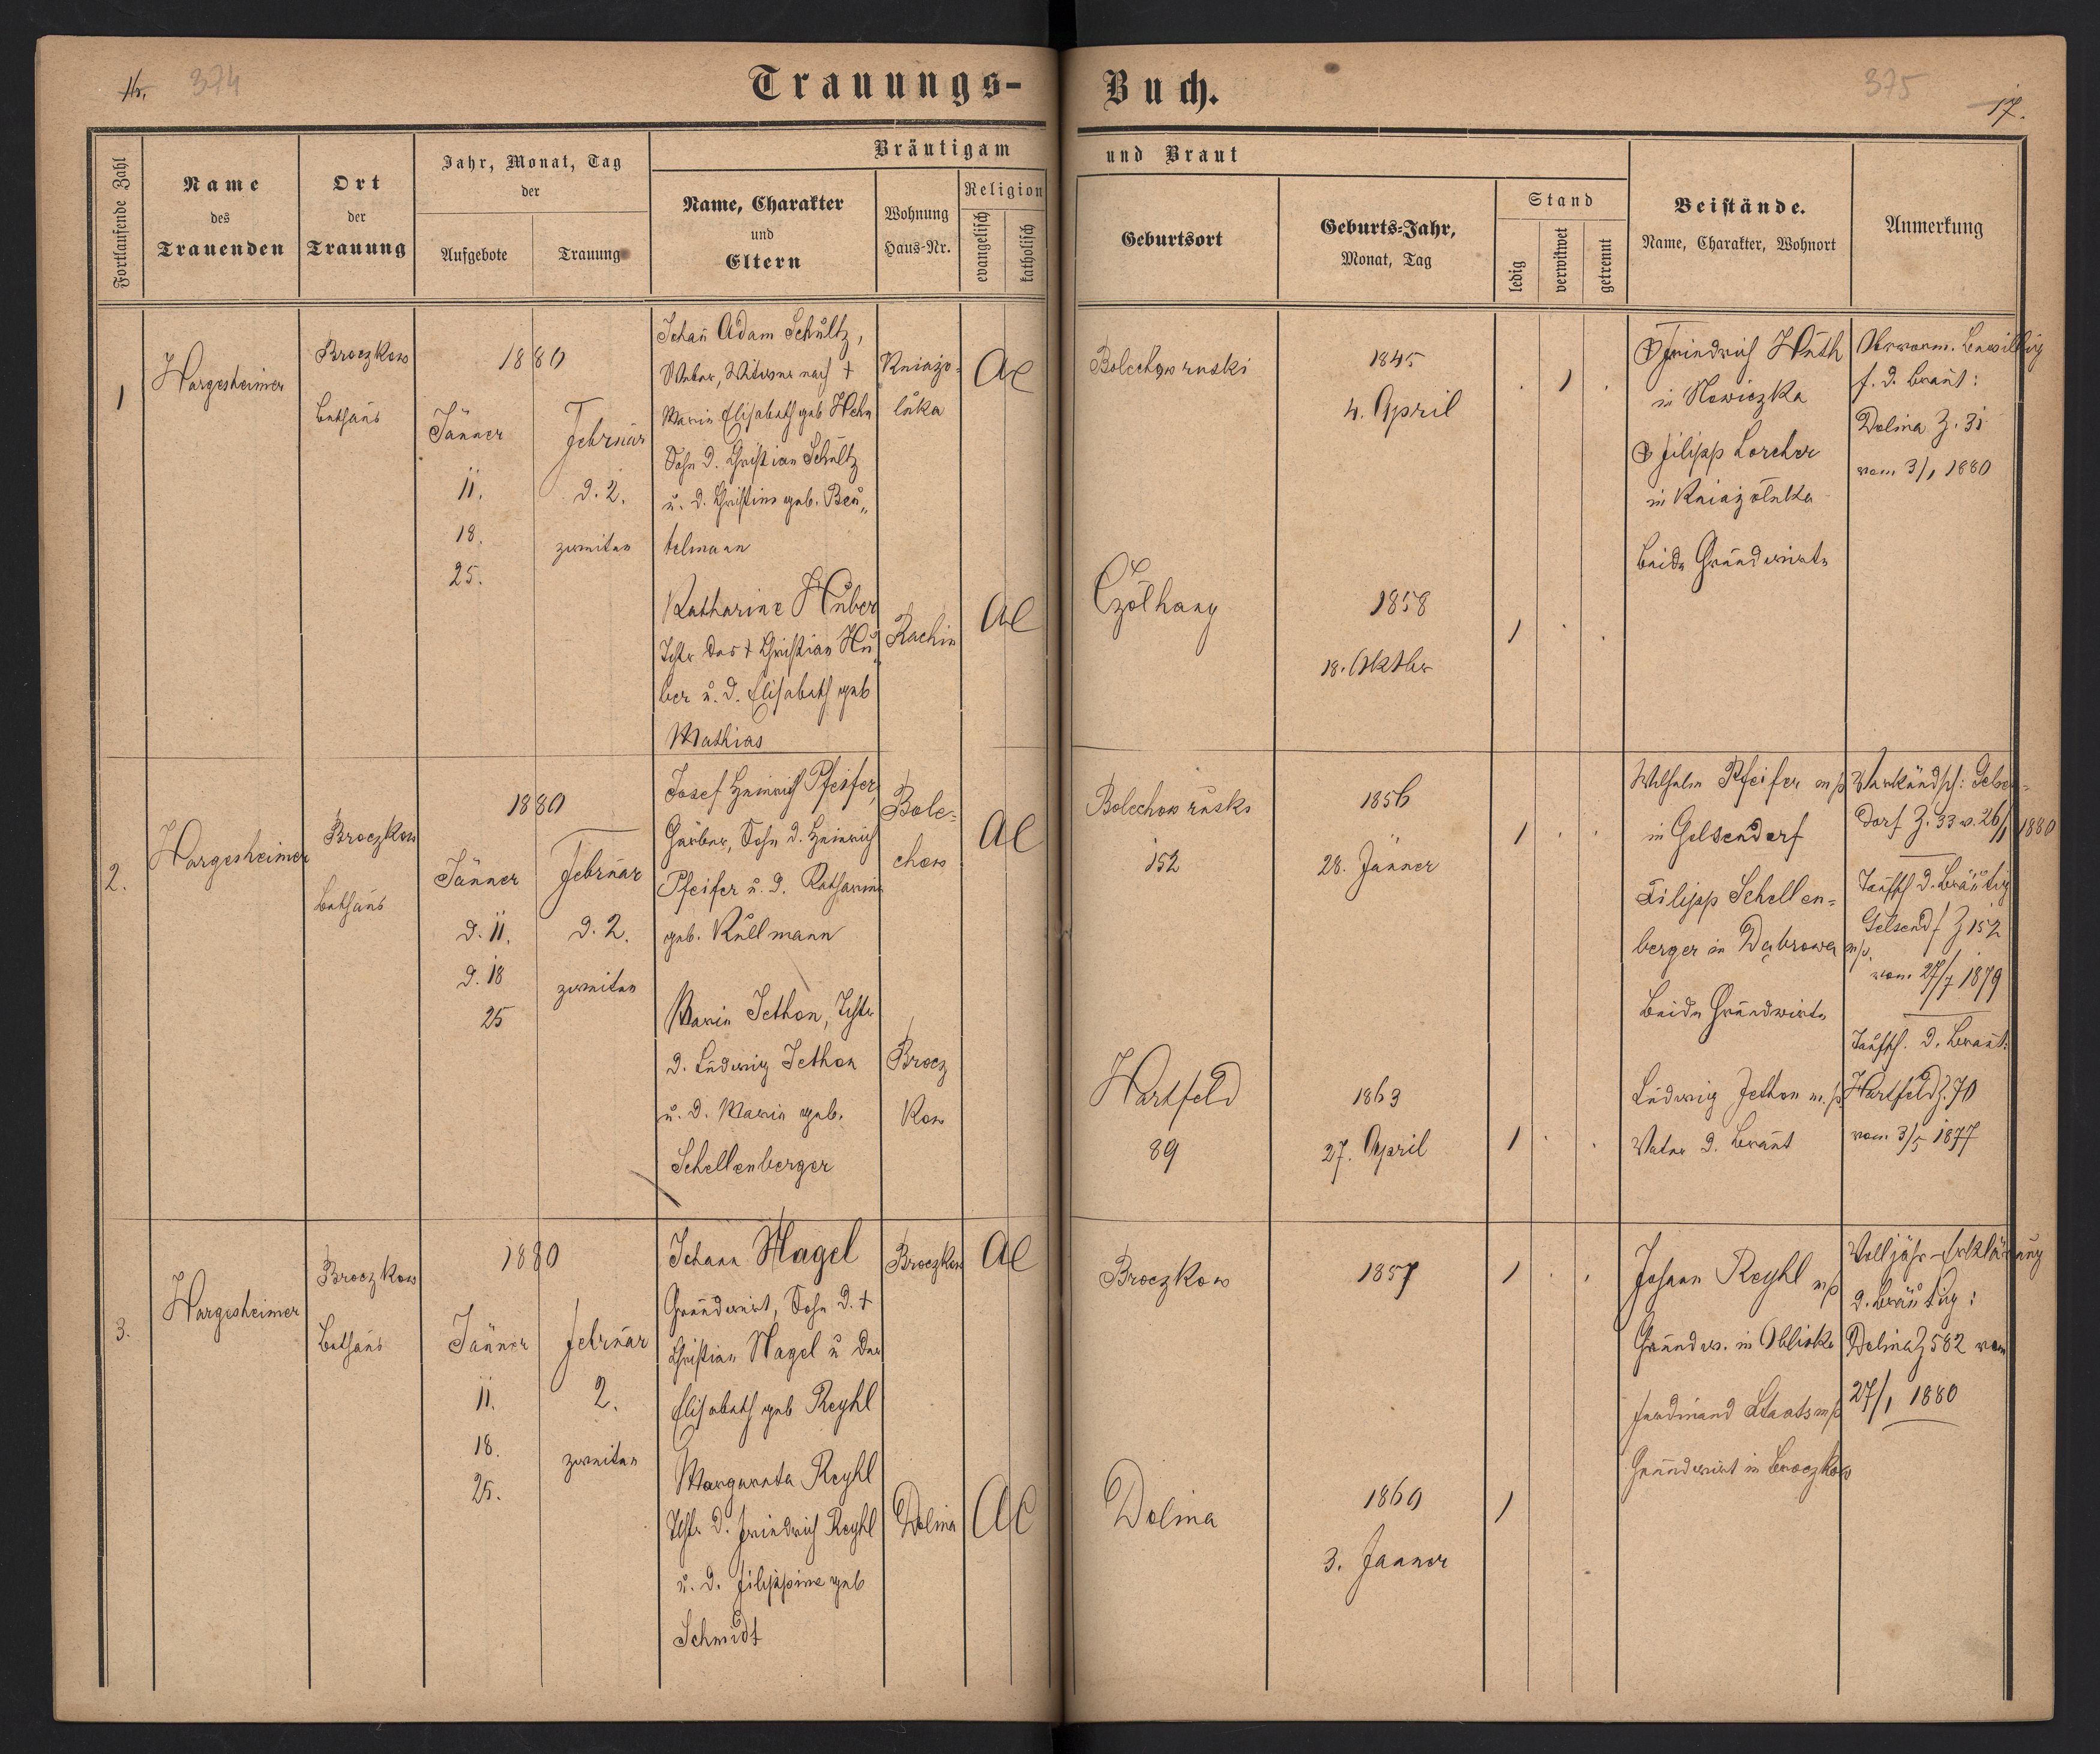 16. 374
Trauungs-
Buch.
375
17.
Fortlaufende Zahl
Name
des
Trauenden
Ort
der
Trauung
Jahr, Monat, Tag
der
Aufgebote
Trauung
Bräutigam
und Braut
Name, Charakter
und
Eltern
Wohnung
Haus-Nr.
Religion
evangelisch
katholisch
Geburtsort
Geburts-Jahr,
Monat, Tag
Stand
ledig
verwitwet
getrennt
Beistände.
Name, Charakter, Wohnort
Anmerkung
1
Hargesheimer
Broczkow
Bethaus
1880
Jänner
11.
18.
25.
Februar
d. 2.
zweiten
Johañ Adam Schultz,
Weber, Witwer nach †
Marie Elisabeth geb Hehn
Sohn d. Christian Schultz
u. d. Christine geb. Beu„
telmann
Kniazo-
luka
Ae
Bolechow ruski
1845
4. April
1
Friedrich Huth
in Nowiczka
Filipp Lorcher
in Kniazoluka
beide Grundwirte
f. d. Braut:
Dolina Z. 31
vom 3/1 1880
Katharine Huber
Tchtr des † Christian Hu„
ber u. d. Elisabeth geb
Mathias
Rachin
Ae
Czolhany
1858
18. Oktbr
1
2.
Hargesheimer
Broczkow
Bethaus
1880
Jänner
d. 11.
d. 18
25
Februar
d. 2.
zweiten
Josef Heinrich Pfeifer,
Gärber, Sohn d. Heinrich
Pfeifer u. d. Katharine
geb. Kullmann
Bole=
chow
Ae
Bolechow ruski
152
1856
28. Jänner
1
Wilhelm Pfeifer m/p
in Gelsendorf
Filipp Schellen=
berger in Dąbrowa m/p.
Beide Grundwirte
Verkündsch: Gelsen=
dorf Z. 33 v. 26/1 1880
Taufsch d. Bräutig
Gelsendf Z 152
vom 27/7 1879
Marie Jethon, Tchtr
d. Ludwig Jethon
u. d. Marie geb.
Schellenberger
Brocz
kow
Hartfeld
89
1863
27. April
1
Ludwig Jethon m./p
Vater d. Braut
Taufsch. d. Braut:
Hartfeld Z. 70
vom 3/5 1877
3.
Hargesheimer
Broczkow
Bethaus
1880
Jänner
11.
18.
25.
Februar
2.
zweiten
Johann Nagel
Grundwirt, Sohn d. †
Christian Nagel u der
Elisabeth geb Reyhl
Broczkow
Ae
Broczkow
1857
1
Johann Reyhl m/p
Grundw. in Obliska
Ferdinand Staats m/p
Grundwirt in Broczkow
Volljähr-Erklärung
d. Bräutig:
Dolina Z 582 vom
27/1 1880
Margareta Reyhl
Tchtr d. Friedrich Reyhl
u. d. Filippine geb
Schmidt
Dolina
Ae
Dolina
1860
3. Janner
1